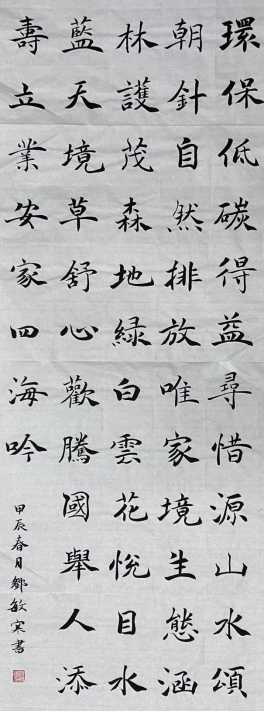 環保低碳得益尋惜源山水頌
朝針自然排放唯家境生態涵
林護茂森地綠白雲花悅目水
藍天境草舒心歡騰國舉人添
壽立業安家四海吟
甲辰春月鄒敏寀書